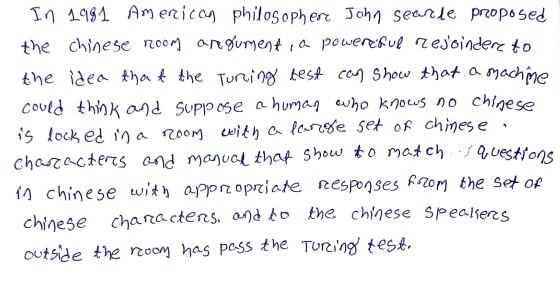 In 1981 American philosopher John searle proposed
the chinese room argument, a powerful rejoinder to
the idea that the Turing test can show that a machine
could think and suppose a human who knows no chinese
is locked in a room with a large set of chinese.
characters and manual that show to match questions
in chinese with appropriate responses from the set of
chinese characters. and to the chinese speakers
outside the room has pass the Turing test.